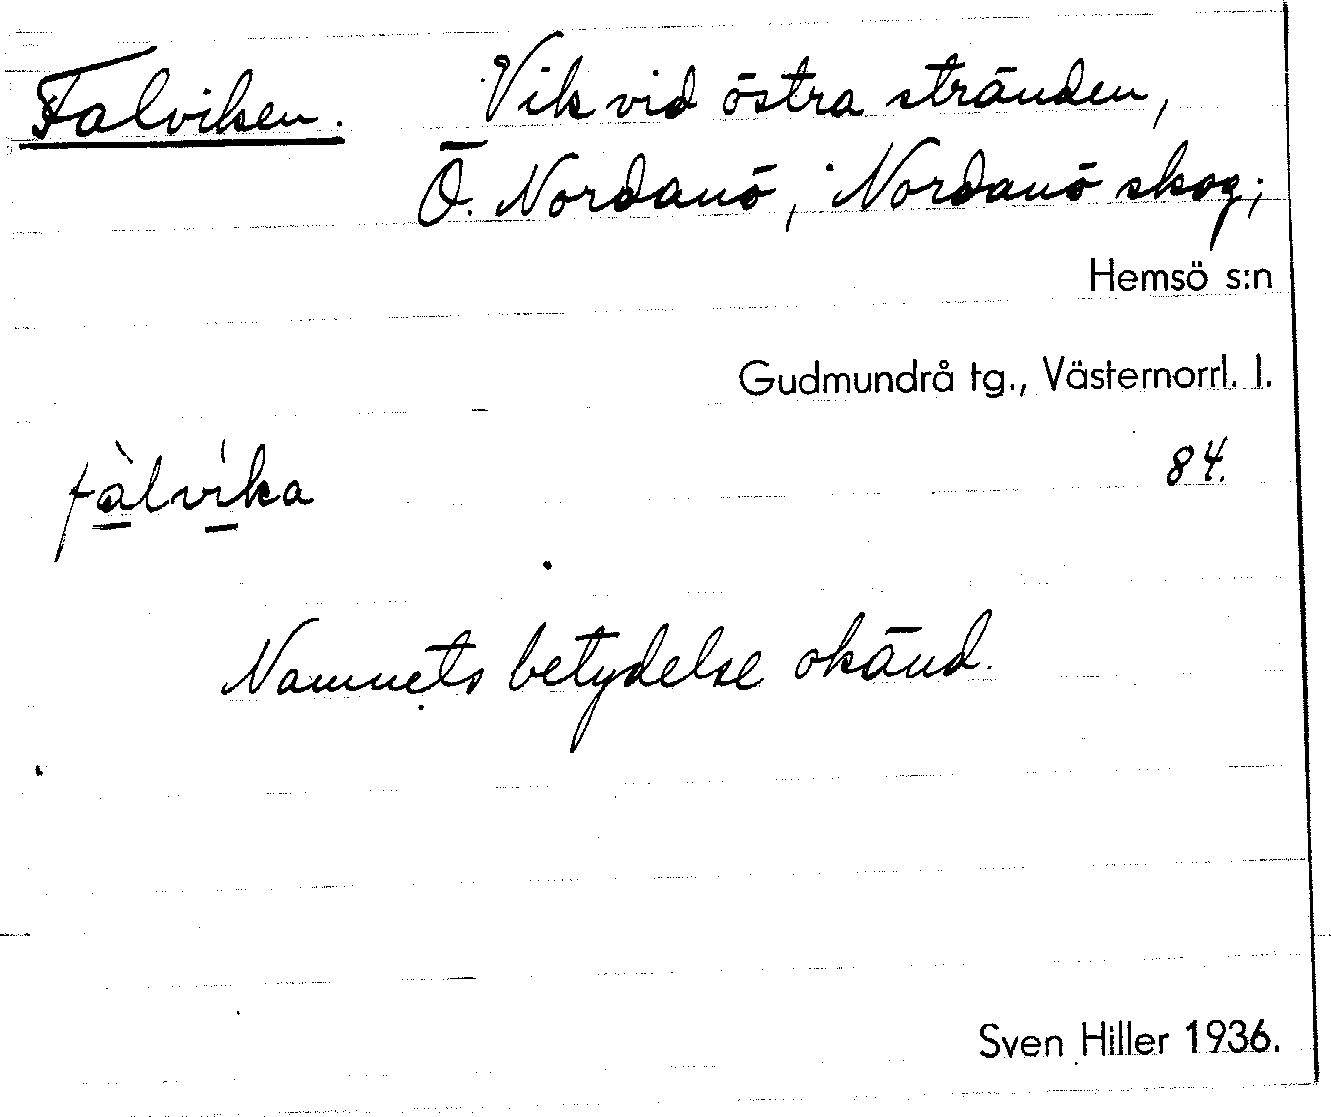 Falviken. Vik vid östra stränden,
Ö. Nordanö, Nordanö skog;
Hemsö s:n
Gudmundrå tg., Västernorrl. l.
fàlvíka 84.
Namnets betydelse okänd.
Sven Hiller 1936.